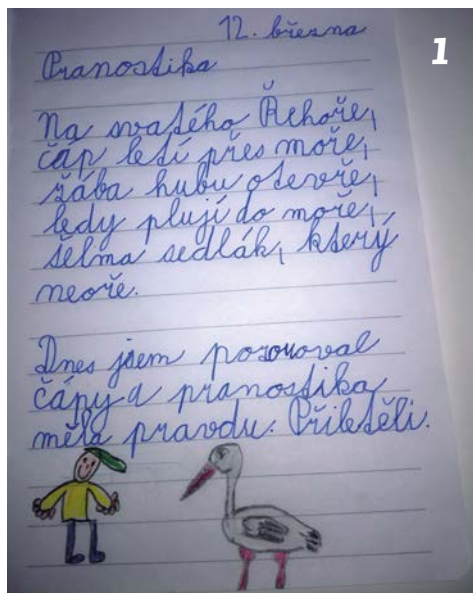 12. března
1
Pranostika
Na svatého Řehoře,
čáp letí přes moře,
žába hubu otevře,
ledy plují do moře,
šelma sedlák, který
neoře.
Dnes jsem pozoroval
čápy a pranostika
měla pravdu. Přiletěli.